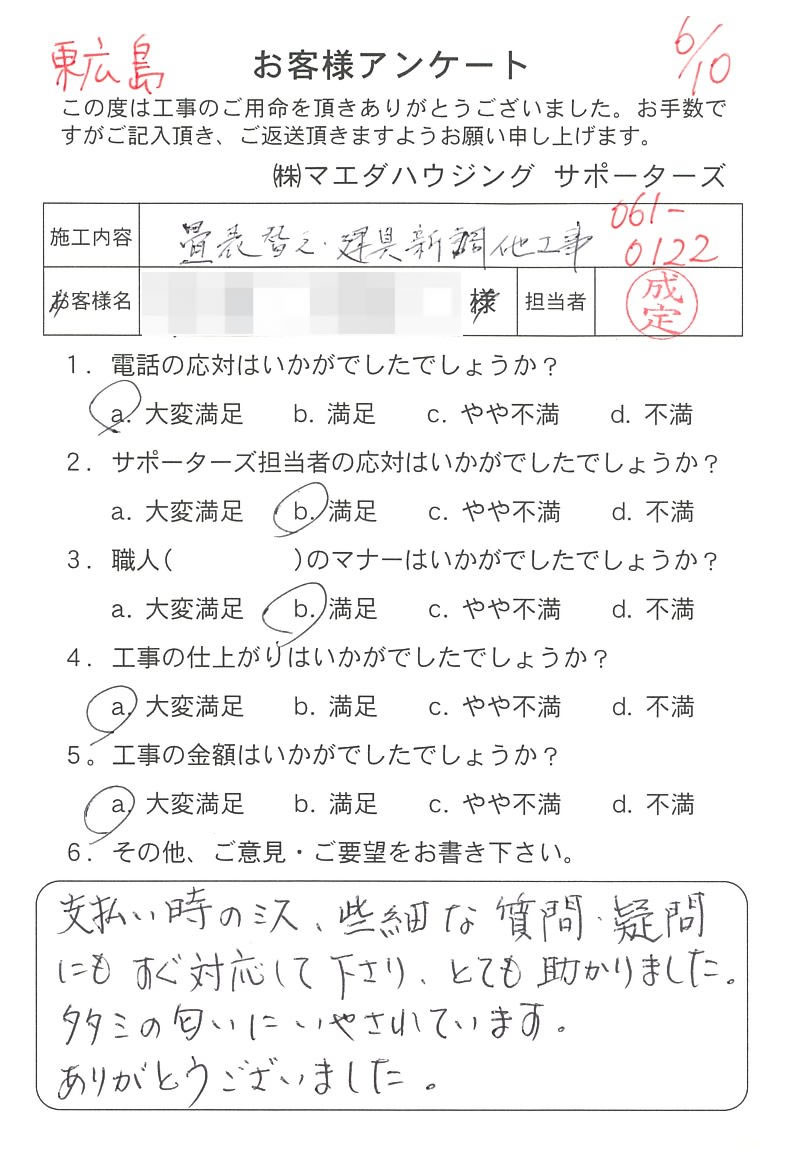 東広島
6/10
お客様アンケート
この度は工事のご用命を頂きありがとうございました。お手数で
すがご記入頂き、ご返送頂きますようお願い申し上げます。
㈱マエダハウジング サポーターズ
施工内容 畳表替え・建具新調他工事
061-
0122
お客様名 様 担当者 成定
1. 電話の応対はいかがでしたでしょうか?
a. 大変満足 b. 満足 c. やや不満 d. 不満
2. サポーターズ担当者の応対はいかがでしたでしょうか?
a. 大変満足 b. 満足 c. やや不満 d. 不満
3. 職人( )のマナーはいかがでしたでしょうか?
a. 大変満足 b. 満足 c. やや不満 d. 不満
4. 工事の仕上がりはいかがでしたでしょうか?
a. 大変満足 b. 満足 c. やや不満 d. 不満
5。工事の金額はいかがでしたでしょうか?
a. 大変満足 b. 満足 c. やや不満 d. 不満
6. その他、ご意見・ご要望をお書き下さい。
支払い時のミス、些細な質問・疑問
にもすぐ対応して下さり、とても助かりました。
タタミの匂いにいやされています。
ありがとうございました。